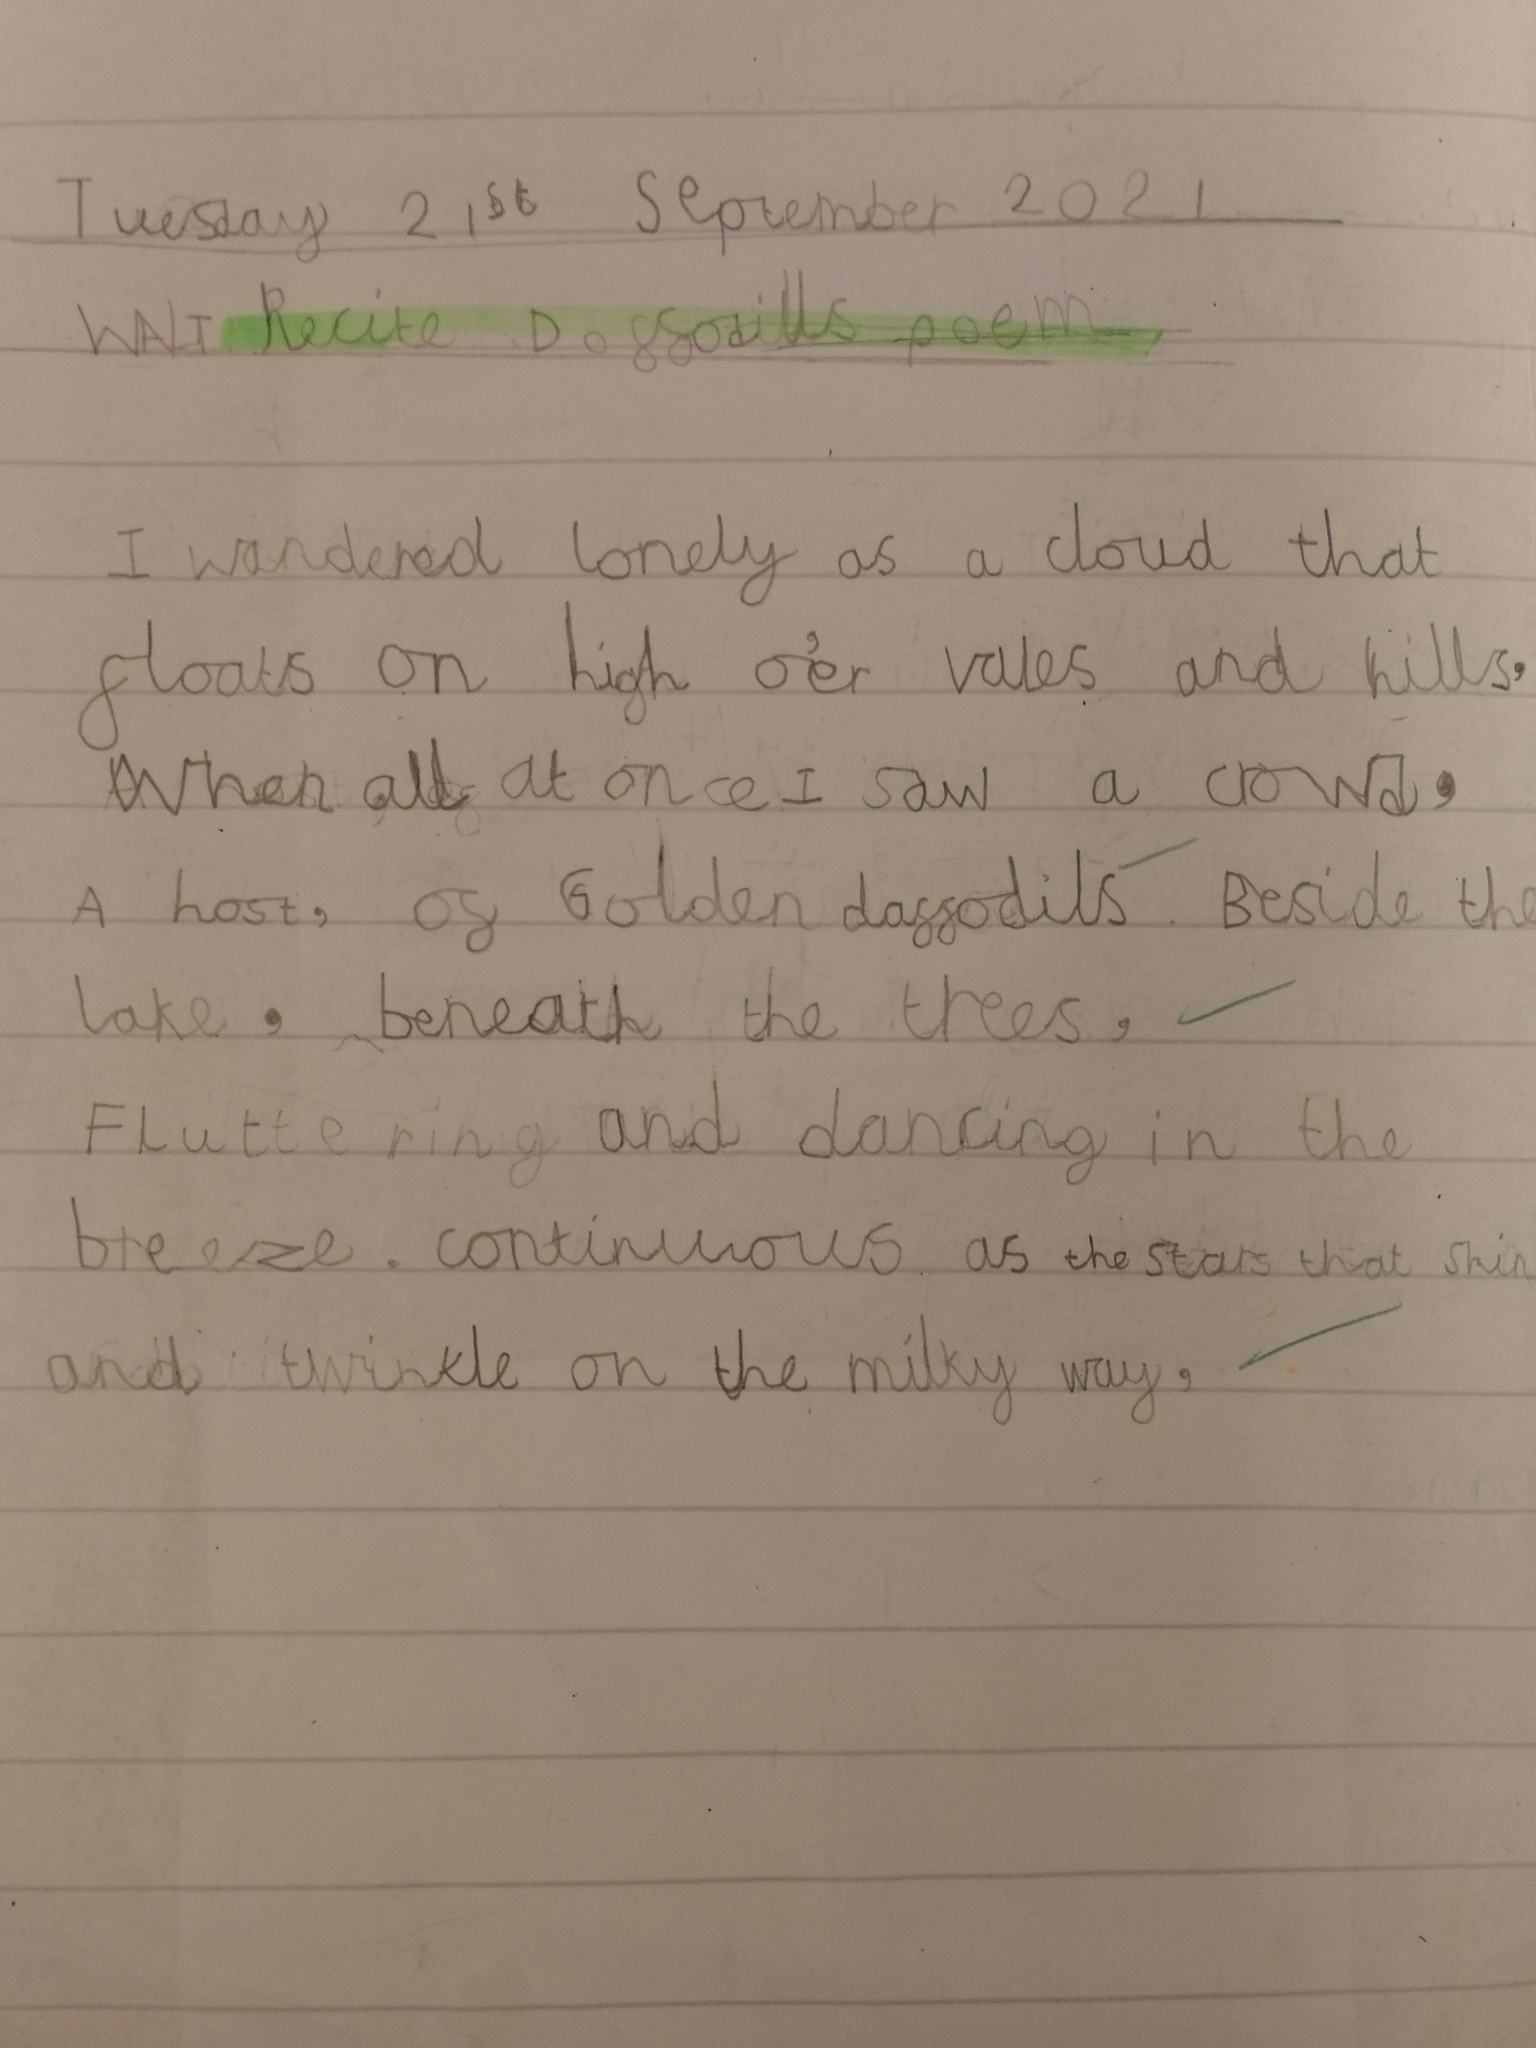 Tuesday 21st September 2021
WALT Recite Daffodills poem
I wandered lonely as a cloud that
floats on high o'er vales and hills,
When all at once I saw a crowd,
A host, of Golden daffodils. Beside the
lake, beneath the trees,
Fluttering and dancing in the
breeze. continuous as the stars that shin
and twinkle on the milky way,